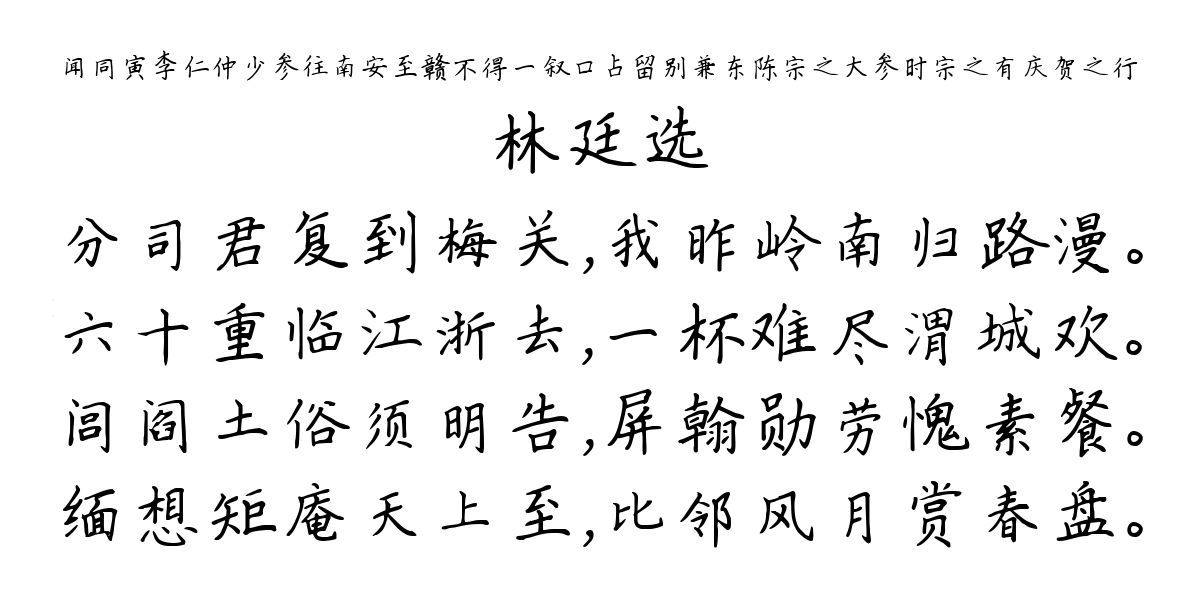 闻同寅李仁仲少参往南安至赣不得一叙口占留别兼东陈宗之大参时宗之有庆贺之行
林廷选
分司君复到梅关,我昨岭南归路漫。
六十重临江浙去,一杯难尽渭城欢。
闾阎土俗须明告,屏翰勋劳愧素餐。
缅想矩庵天上至,比邻风月赏春盘。